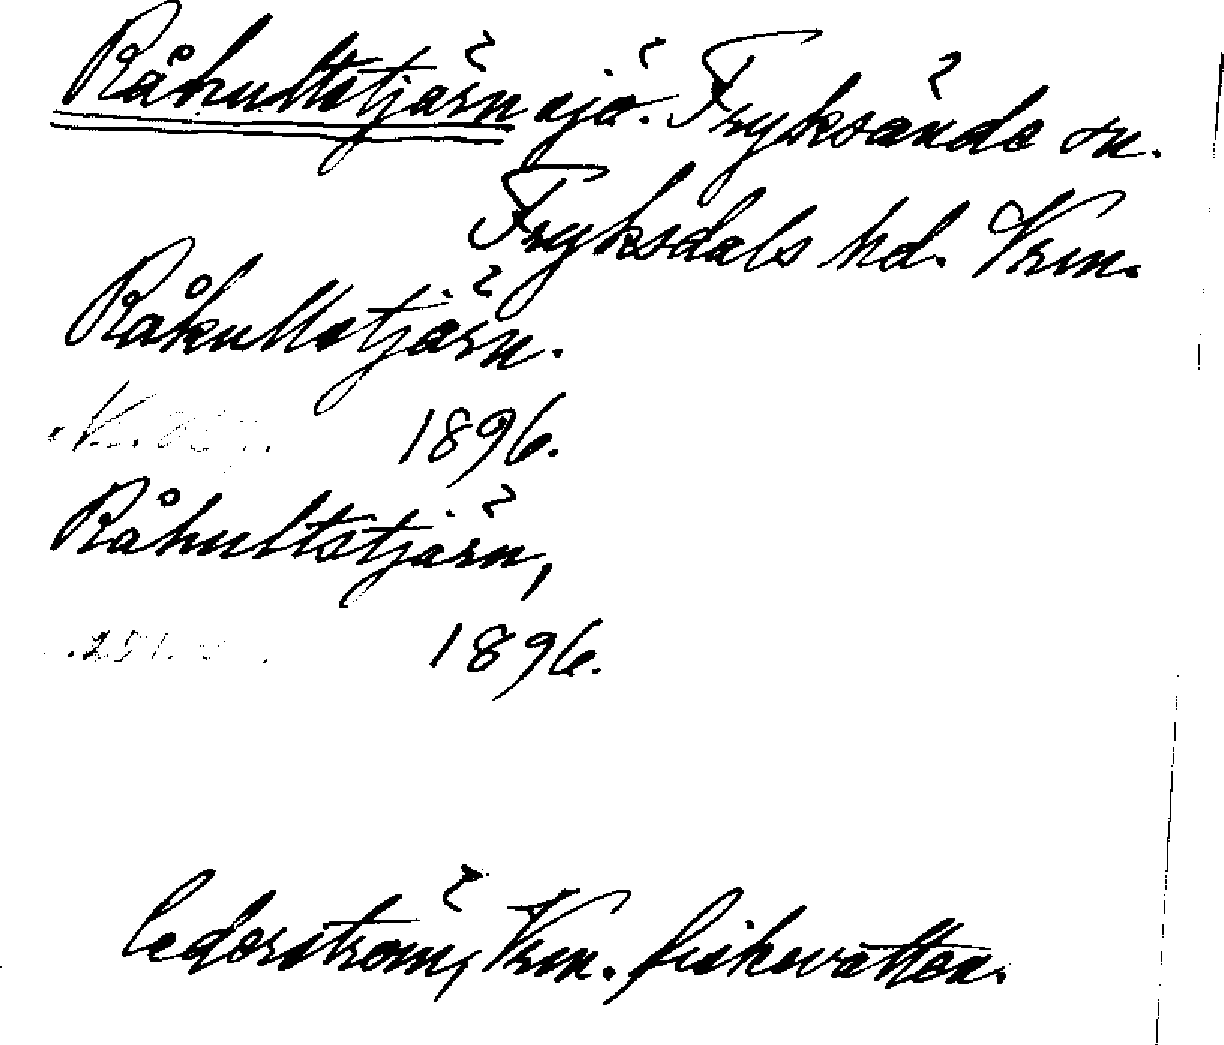 Råhultstjärn sjö. Fryksände sn.
Fryksdals hd. Vrm.
Råkullstjärn.
1896.
Råhultstjärn,
251. 1896.
Cederström, Vrm. fiskevatten.